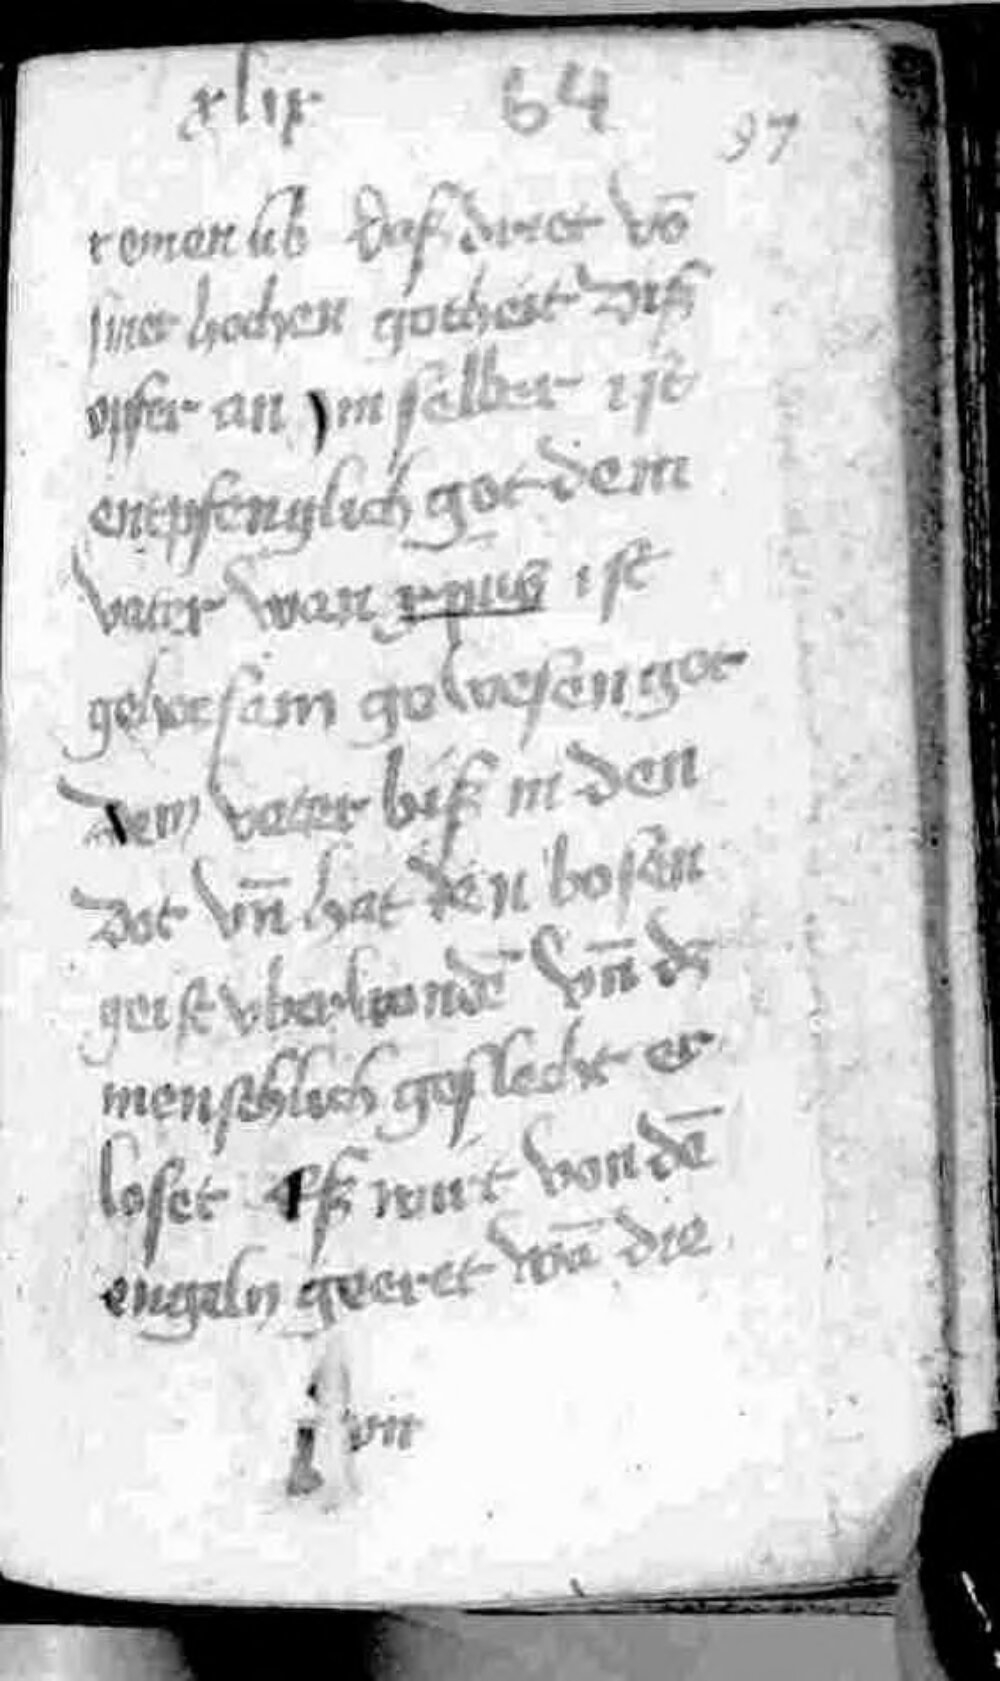 xlix 64 97
remen lib Daß Dieret vō
siner hochen gotheit Diß
opfer an im selber ist
entpfenglich got dem
vater wan xpūs ist
gehorsam gewesen got
dem vater biß in den
Dot vn̄ hat den bosen
geist vberwundē vn̄ dz
menschlich geslecht er
loset Eß wirt von dē
engeln geeret wā die
vn